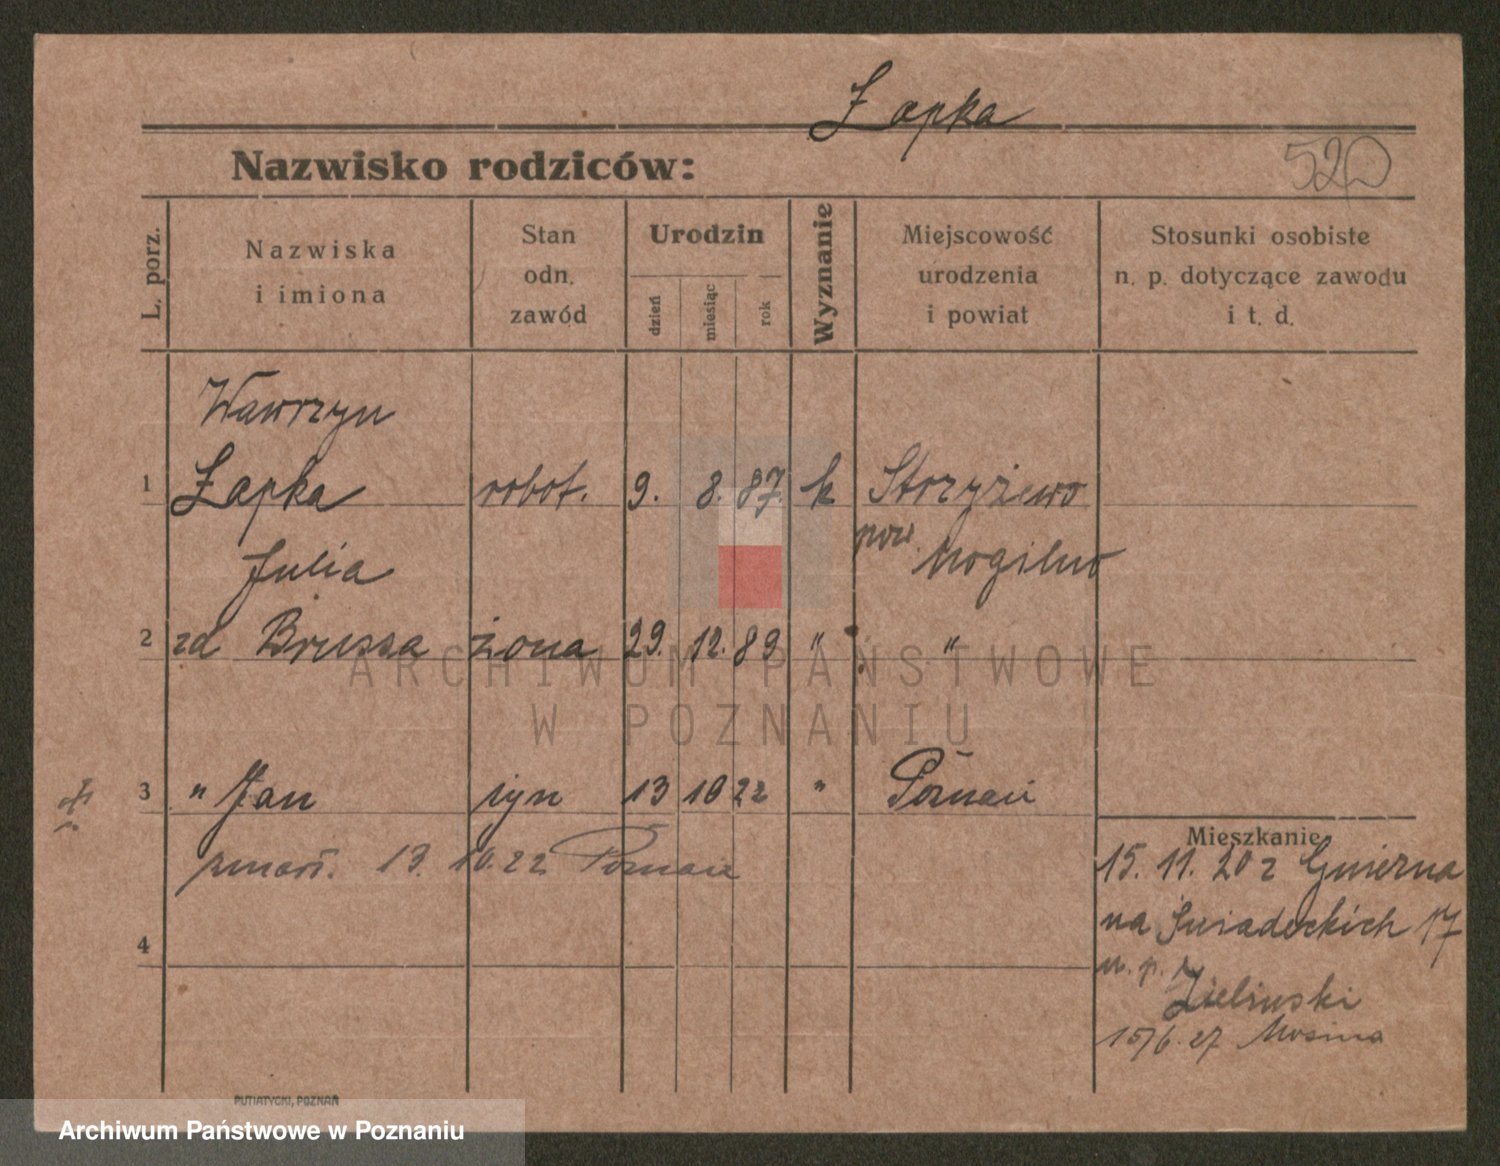 Łapka
Nazwisko rodziców:
520
L. porz.
Nazwiska
i imiona
Stan
odn.
zawód
Urodzin
dzień
miesiąc
rok
Wyznanie
Miejscowość
urodzenia
i powiat
Stosunki osobiste
n. p. dotyczące zawodu
i t. d.
Wawrzyn
1 Łapka robot. 9. 8. 87. k Strzyżewo
pow. Mogilno
Julia
2 zd Brussa żona 29. 12. 89 " "
ARCHIWUM PAŃSTWOWE
W POZNANIU
3 " Jan syn 13 10 22 " Poznań
zmarł. 13. 10. 22 Poznań
4
Mieszkanie
15. 11. 20 z Gwierna
na Śniadeckich 17
u. p.
Zieliński
15/6. 27 Mosina
PUTIATYCKI, POZNAŃ
Archiwum Państwowe w Poznaniu